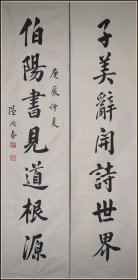 子美辭開詩世界
伯陽書見道根源
庚辰仲夏